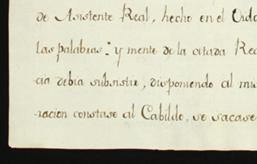 de Asistente Real, hecho en el Ordo
las palabras: y mente de la citada Rea
cia debia subsistir, disponiendo al mis
racion constase al Cabildo, se sacase